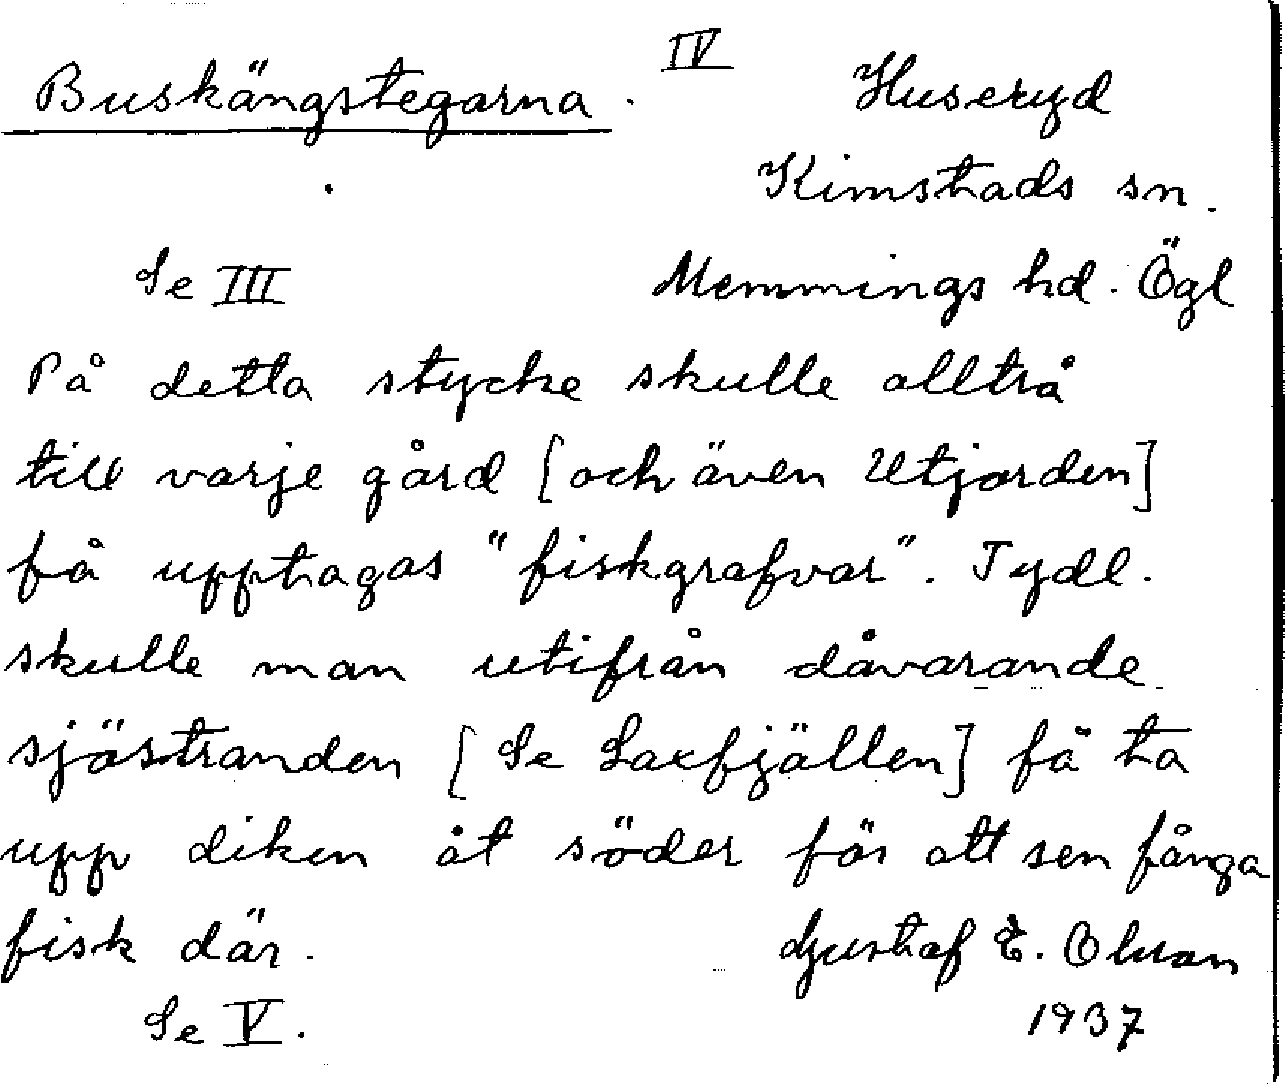 IV
Buskängstegarna. Huseryd
Kimstads sn.
Se III Memmings hd. Ögl
På detta stycke skulle alltså
till varje gård [och även Utjorden]
få upptagas "fiskgrafvar". Tydl.
skulle man utifrån dåvarande
sjöstranden [Se Laxfjällen] få ta
upp diken åt söder för att sen fånga
fisk där. Gustaf E. Olsson
Se V. 1937